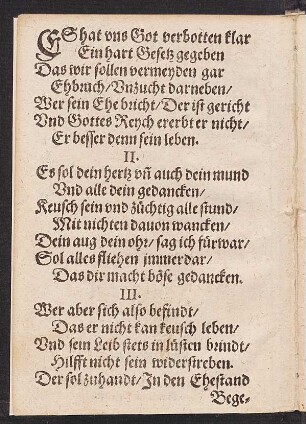 ES hat vns Got verbotten klar
Ein hart Gesetz gegeben
Das wir sollen vermeyden gar
Ehbruch/ Vnzucht darneben/
Wer sein Ehe bricht/ Der ist gericht
Vnd Gottes Reych ererbt er nicht/
Er besser denn sein leben.
II.
Es sol dein hertz vñ auch dein mund
Vnd alle dein gedancken/
Keusch sein vnd züchtig alle stund/
Mit nichten dauon wancken/
Dein aug dein ohr/ sag ich fürwar/
Sol alles fliehen jmmerdar/
Das dir macht böse gedancken.
III.
Wer aber sich also befindt/
Das er nicht kan keusch leben/
Vnd sein Leib stets in lüsten brindt/
Hilfft nicht sein widerstreben.
Der sol zuhandt/ In den Ehestand
Bege-